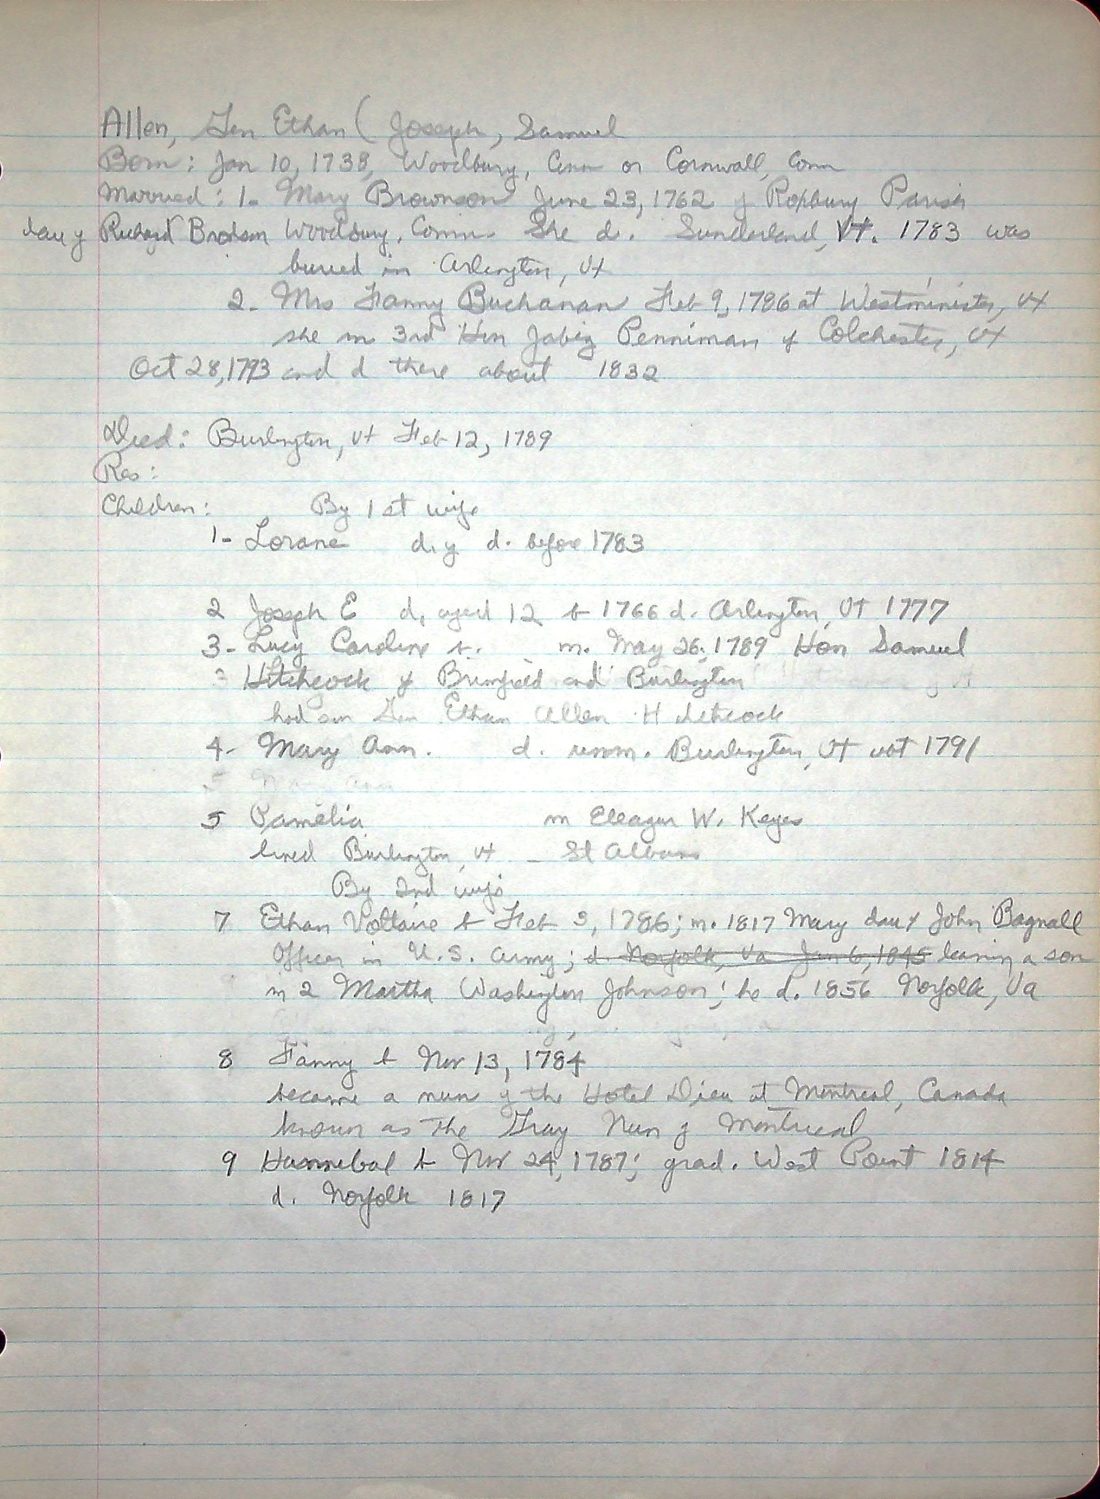 Allen, Gen Ethan ( Joseph, Samuel
Born: Jan 10, 1738, Woodbury, Conn or Cornwall, Conn
Married: 1- Mary Brownson June 23, 1762 of Roxbury Parish
dau of Richard Brownson Woodbury, Conn. She d. Sunderland, Vt. 1783 was
buried in Arlington, Vt
2- Mrs Fanny Buchanan Feb 9, 1786 at Westminister, Vt
she m 3rd Hon Jabez Penniman of Colchester, Vt
Oct 28, 1793 and d there about 1832
Died: Burlington, Vt Feb 12, 1789
Res:
Children: By 1st wife
1- Lorane d. y d. before 1783
2 Joseph E d. aged 12 b 1766 d. Arlington, Vt 1777
3- Lucy Caroline b. m. May 26, 1789 Hon Samuel
3 Hitchcock of Brimfield and Burlington
had son Gen Ethan Allen Hitchcock
4- Mary Ann. d. unm. Burlington, Vt abt 1791
5 Mary Ann
5 Pamelia m Eleazur W. Keyes
lived Burlington, Vt - St Albans
By 2nd wife
7 Ethan Voltaire b Feb 3, 1786; m. 1817 Mary dau of John Bagnall
Officer in U.S. Army; d Norfolk, Va Jan 6, 1845 leaving a son
m 2 Martha Washington Johnson; he d. 1856 Norfolk, Va
8 Fanny b Nov 13, 1784
became a nun of the Hotel Dieu at Montreal, Canada
known as The Gray Nun of Montreal
9 Hannibal b Nov 24, 1787; grad. West Point 1814
d. Norfolk 1817